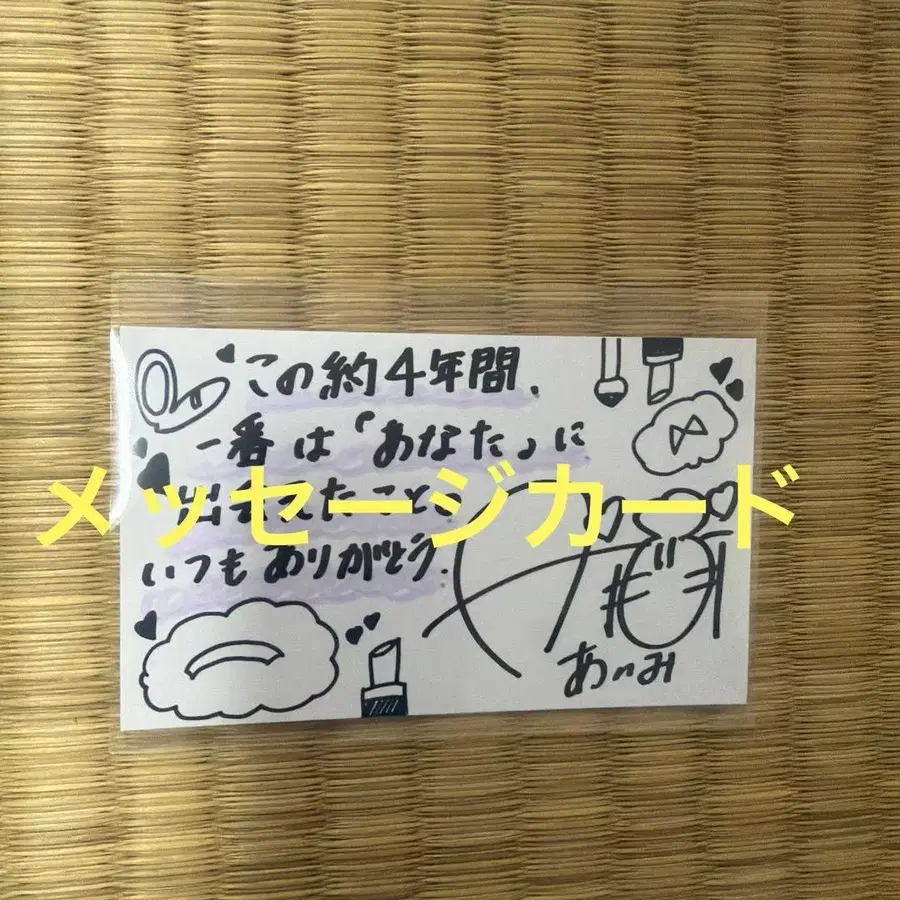 この約4年間、
一番は「あなた」に
出会えたこと。
いつもありがとう。
メッセージカード
あいみ